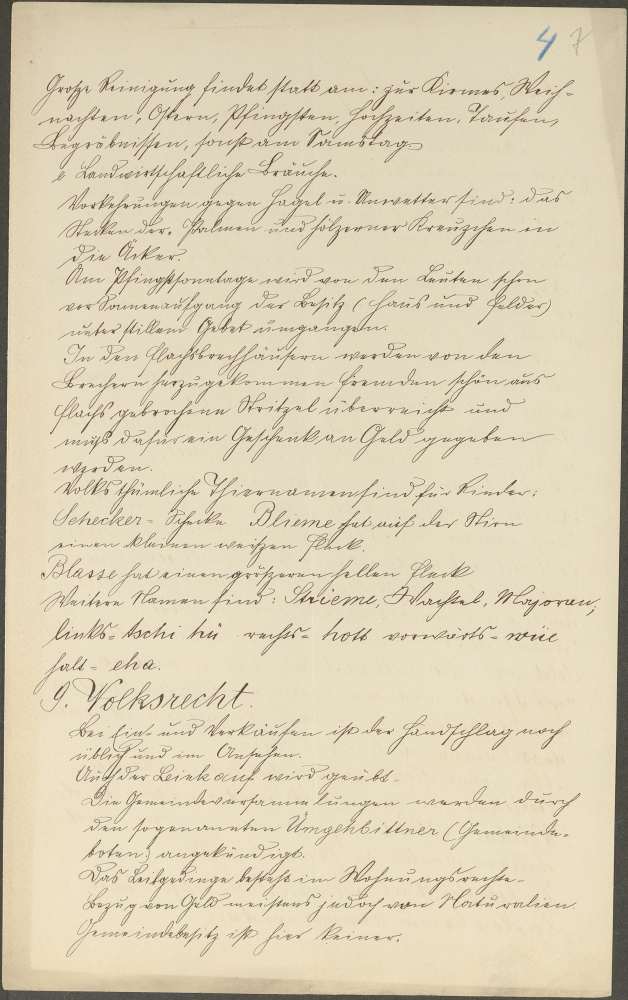 4 7
Große Reinigung findet statt am: zur Kirmes, Weih-
nachten, Ostern, Pfingsten, Hochzeiten, Taufen,
Begräbnissen, sonst am Samstag.
e Landwirtschaftliche Bräuche.
Vorkehrungen gegen Hagel u. Unwetter sind: das
Stecken der Palmen und hölzerner Kreuzchen in
die Äcker.
Am Pfingstsonntage wird von den Leuten schon
vor Sonnenaufgang der Besitz (Haus und Felder)
unter stillem Gebet umgangen.
In den Flachsbrechhäusern werden von den
Brechern herzugekommenen Fremden schön aus
Flachs gebrochene Stritzel überreicht und
muß dafür ein Geschenk an Geld gegeben
werden.
Volksthümliche Thiernamen sind für Rinder:
Schecker = Schecke Blieme hat auf der Stirn
einen kleinen weißen Fleck.
Blasse hat einen größeren hellen Fleck
Weitere Namen sind: Strieme, Wachtel, Majoran,
links = tschi hü rechts = hott vorwärts = wüe
halt = eha.
9. Volksrecht.
Bei Ein- und Verkäufen ist der Handschlag noch
üblich und im Ansehen.
Auch der Leikauf wird geübt.
Die Gemeindeversammlungen werden durch
den sogenannten Umgehbittner (Gemeinde-
boten) angekündigt.
Das Leibgedinge besteht im Wohnungsrechte
Bezug von Geld meistens jedoch von Naturalien.
Gemeindebesitz ist hier keiner.